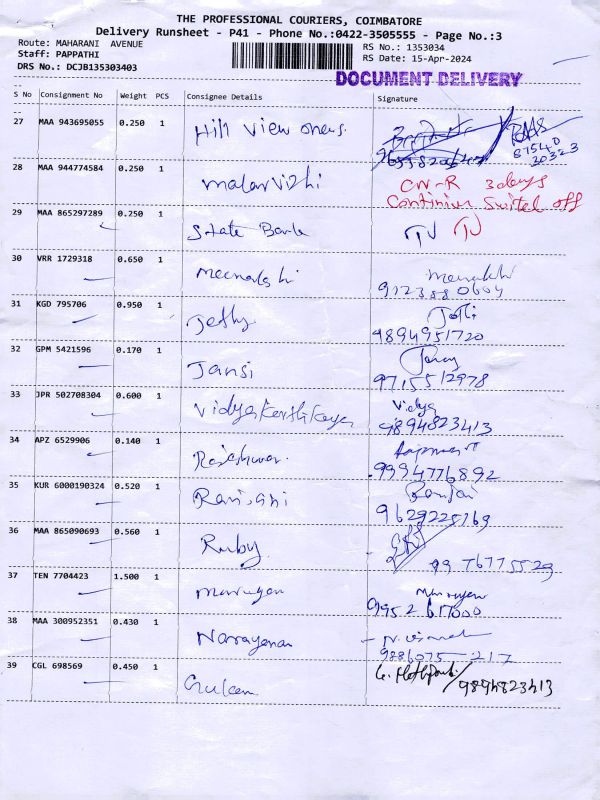 THE PROFESSIONAL COURIERS, COIMBATORE
Delivery Runsheet - P41 - Phone No.:0422-3505555 - Page No.:3
Route: MAHARANI AVENUE
RS No.: 1353034
Staff: PAPPATHI
RS Date: 15-Apr-2024
DRS No.: DCJB135303403
DOCUMENT DELIVERY
S No Consignment No Weight PCS Consignee Details Signature
27 MAA 943695055 0.250 1 Hill view
87540
20323
28 MAA 944774584 0.250 1 malarvizhi CN-R 3days
29 MAA 865297289 0.250 1 State Bank
30 VRR 1729318 0.650 1 meenakshi
9123580604
31 KGD 795706 0.950 1 Jethy
9894951720
32 GPM 5421596 0.170 1 Jansi
9715512978
33 JPR 502708304 0.600 1 Vidyakarthikaya Vidya
9894823413
34 APZ 6529906 0.140 1 Rajeshwari
9994776892
35 KUR 6000190324 0.520 1 Ranjani Ranjai
9629225769
36 MAA 865090693 0.560 1 Ruby
9976775529
37 TEN 7704423 1.500 1 murugan murugan
9952617000
38 MAA 300952351 0.430 1 Narayanan
9886075-217
39 CGL 698569 0.450 1 9894823413